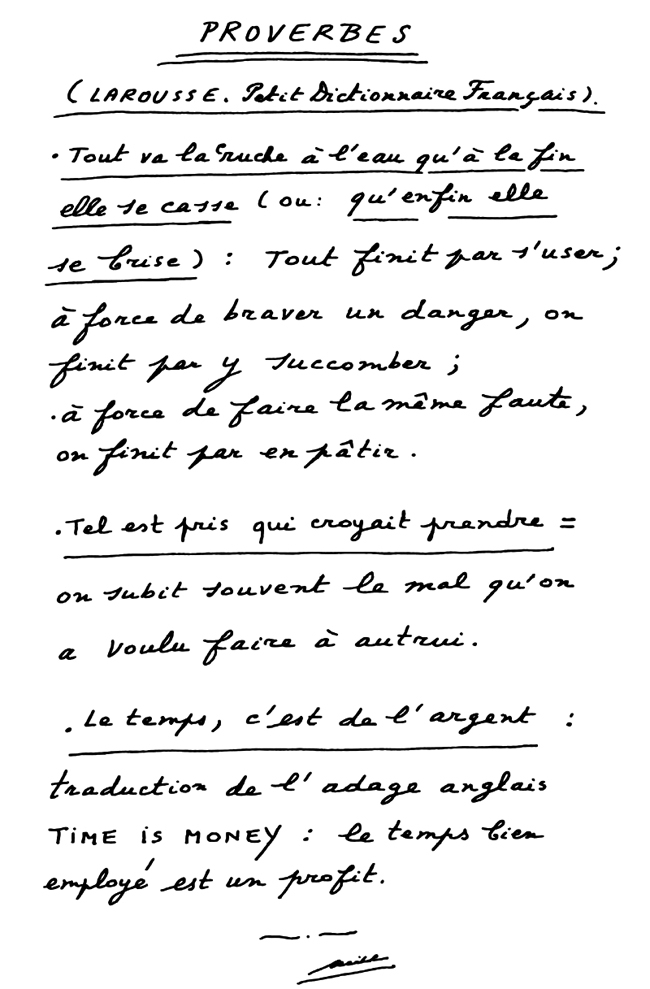 PROVERBES
(LAROUSSE. Petit Dictionnaire Français).
· Tout va la cruche à l'eau qu'à la fin
elle se casse (ou: qu'enfin elle
se brise) : Tout finit par s'user;
à force de braver un danger, on
finit par y succomber ;
·à force de faire la même faute,
on finit par en pâtir.
·Tel est pris qui croyait prendre =
on subit souvent le mal qu'on
a voulu faire à autrui.
. Le temps, c'est de l'argent :
traduction de l'adage anglais
TIME is MONEY : le temps bien
employé est un profit.